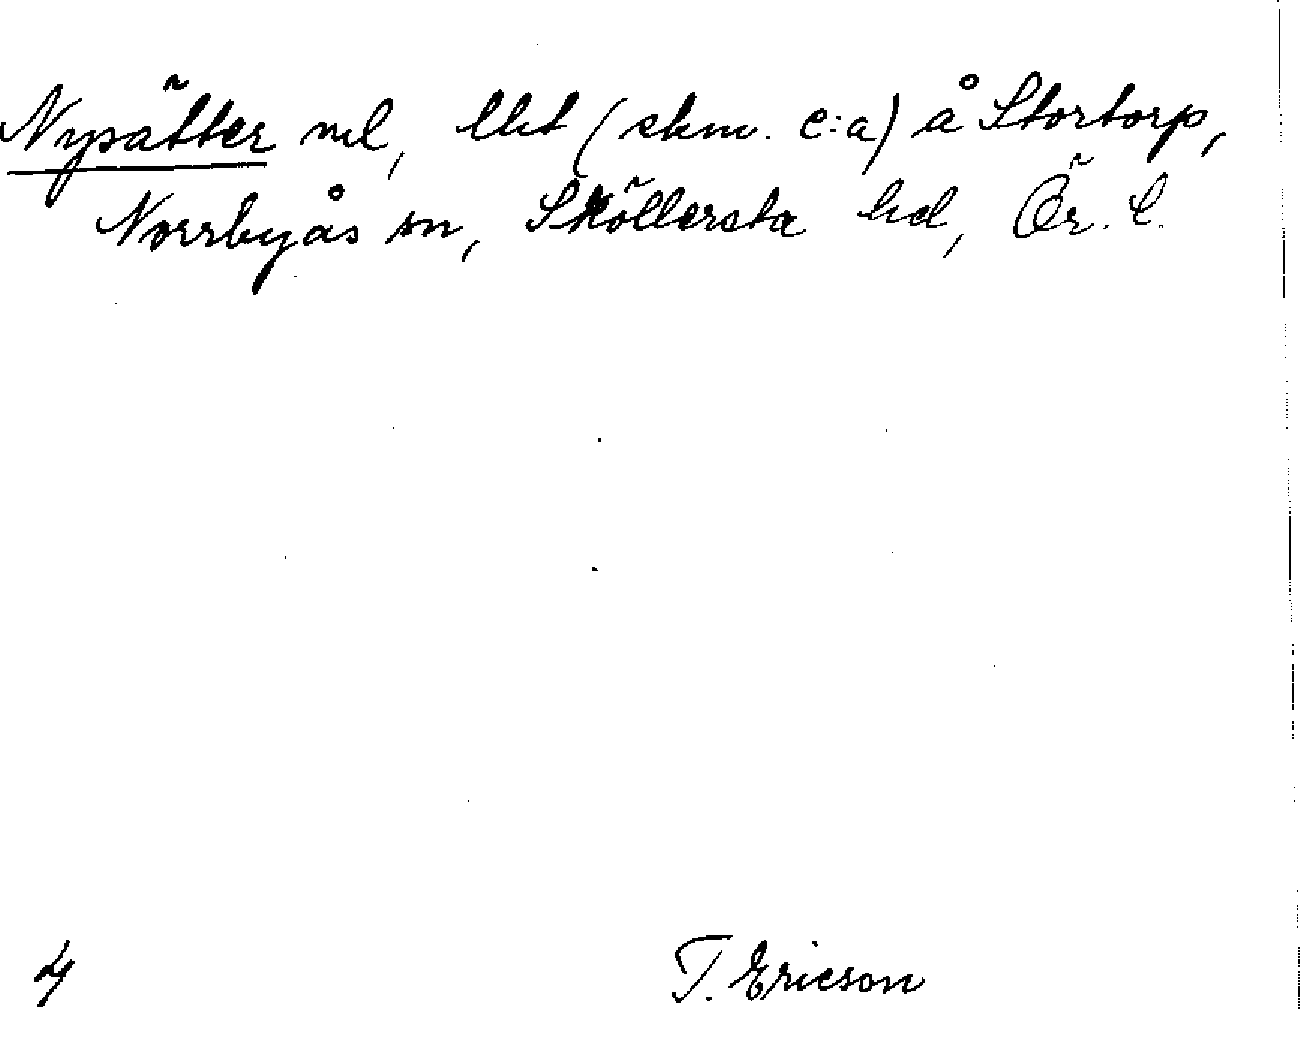 Nysätter nul, lht (skm. e:a) å Stortorp,
Norrbyås sn, Sköllersta hd, Ör. l.
4
T. Ericson